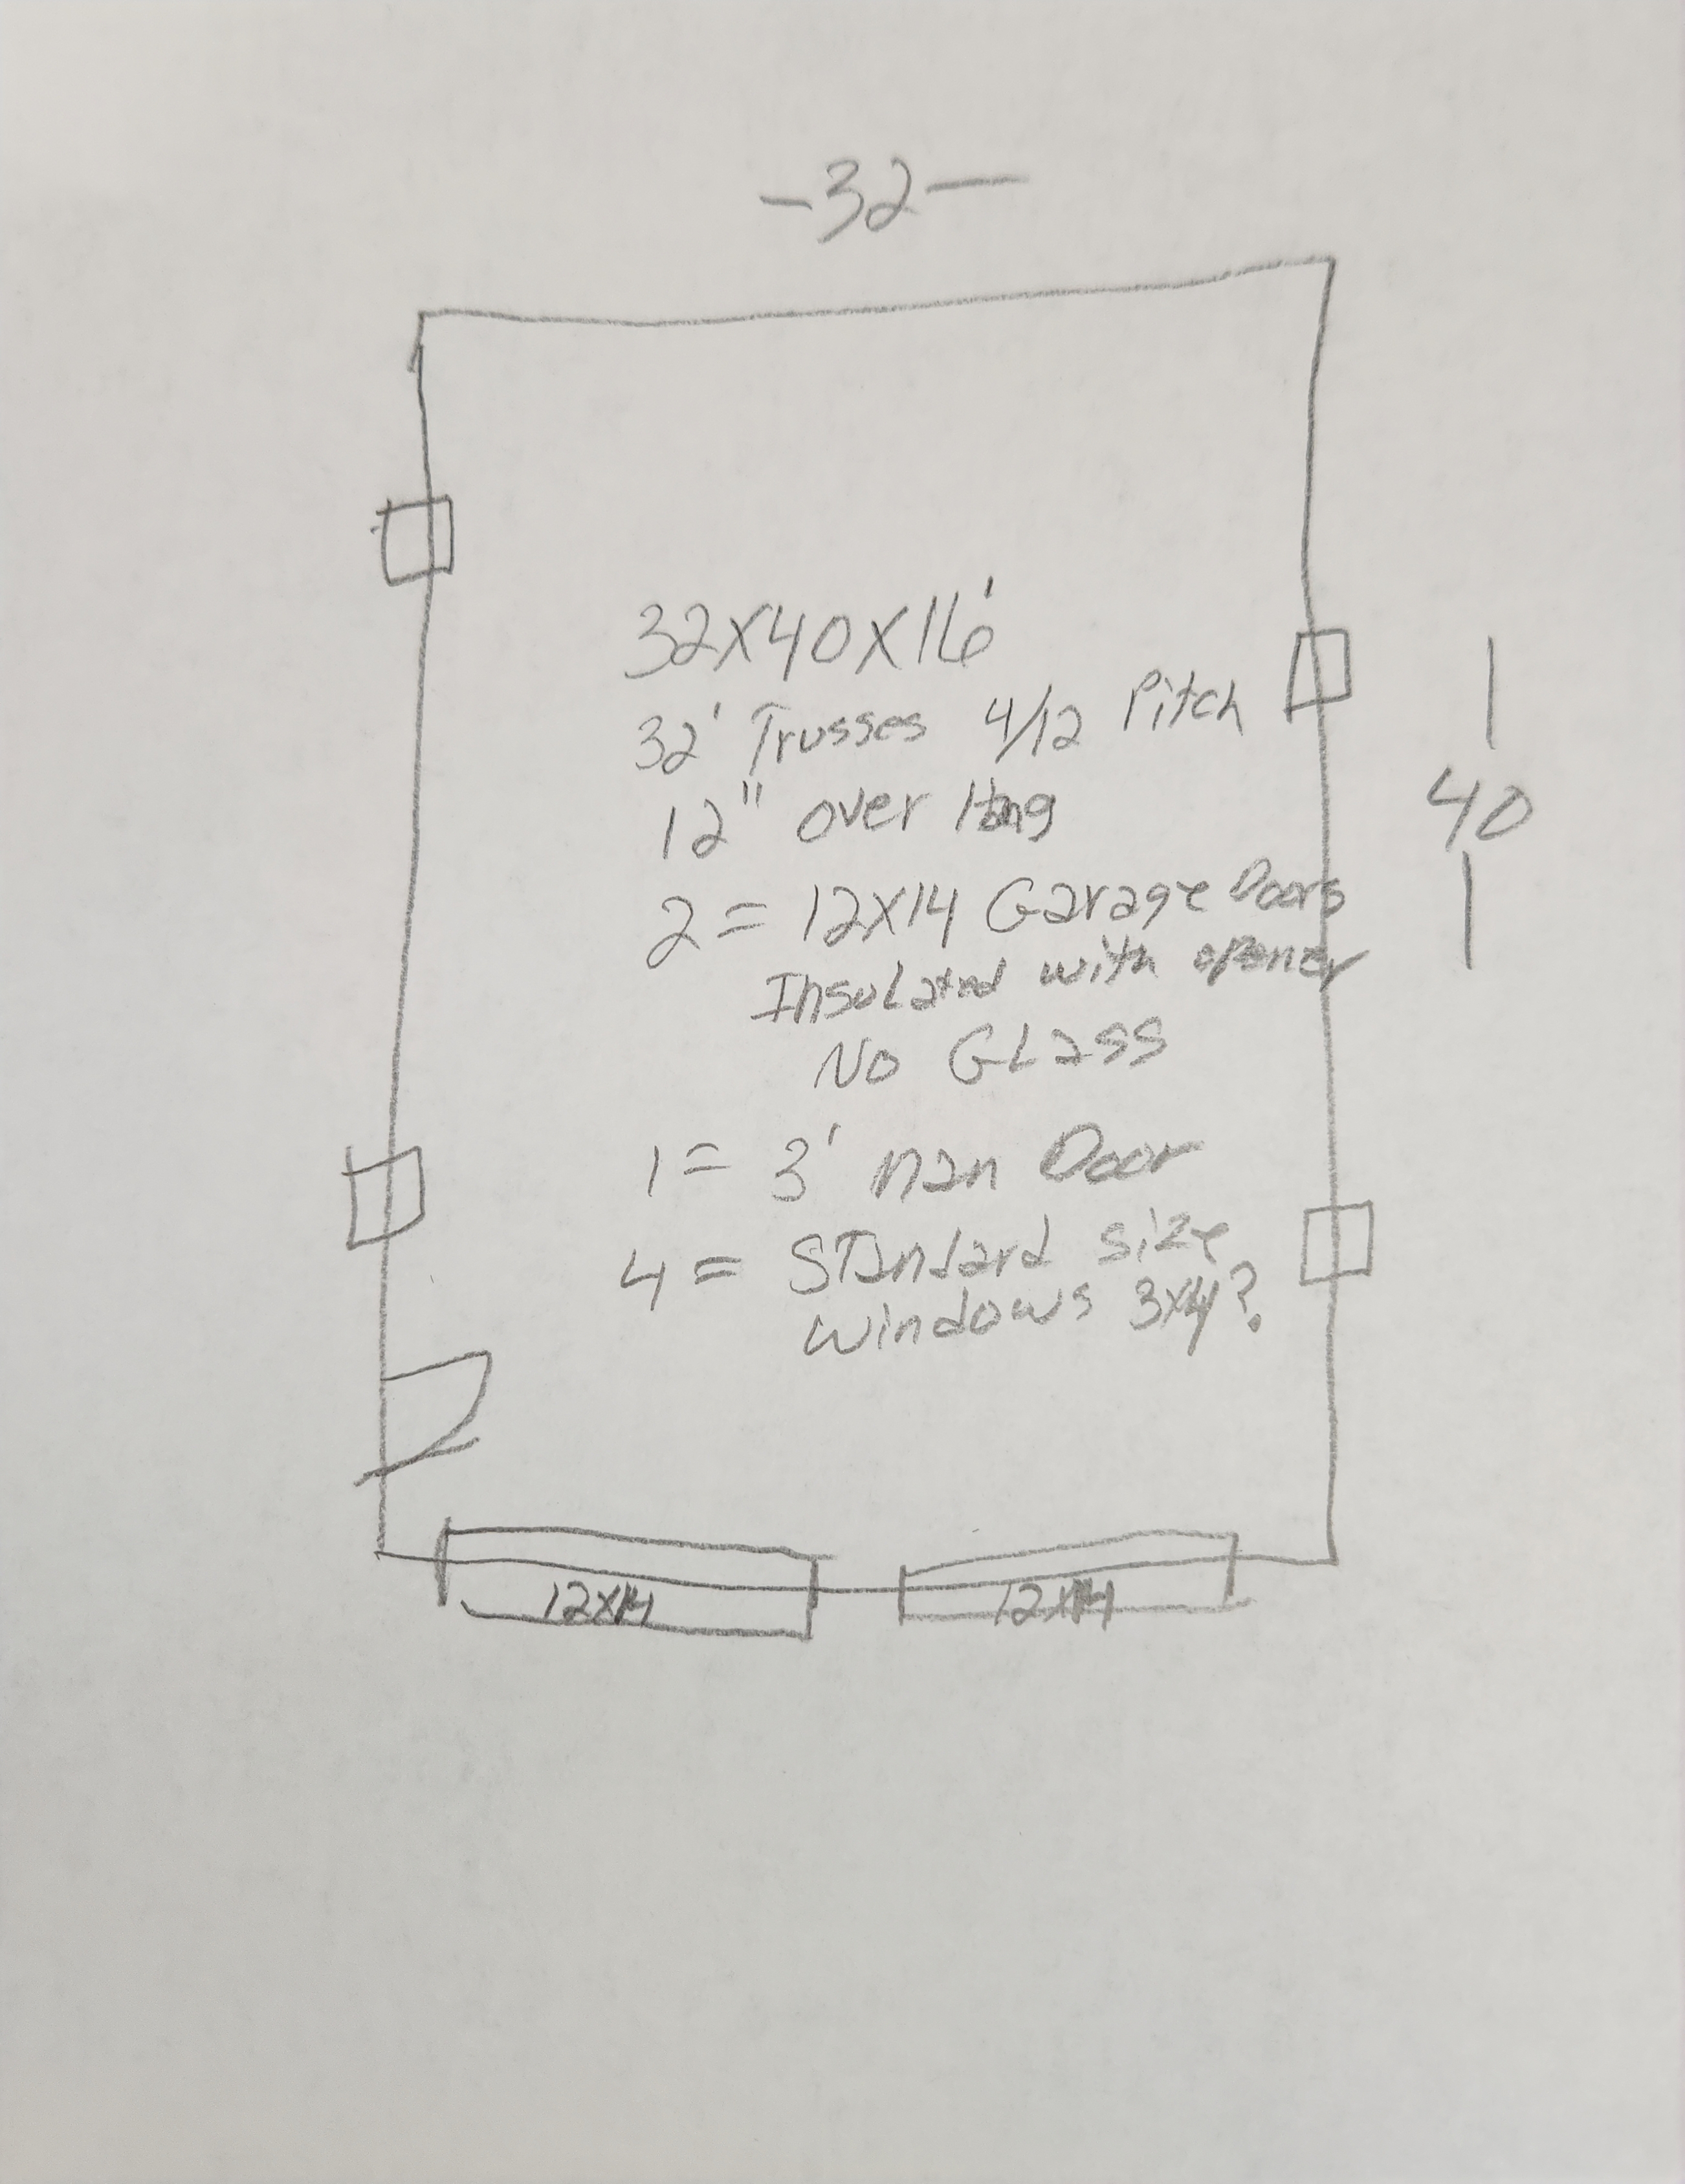 -32-
32x40x16'
32' Trusses 4/12 Pitch
12" over Hang
40
2 = 12x14 Garage Doors
Insulated with opener
No GLass
1 = 3' man Door
4 = Standard size
windows 3x4?
12x14
12x14